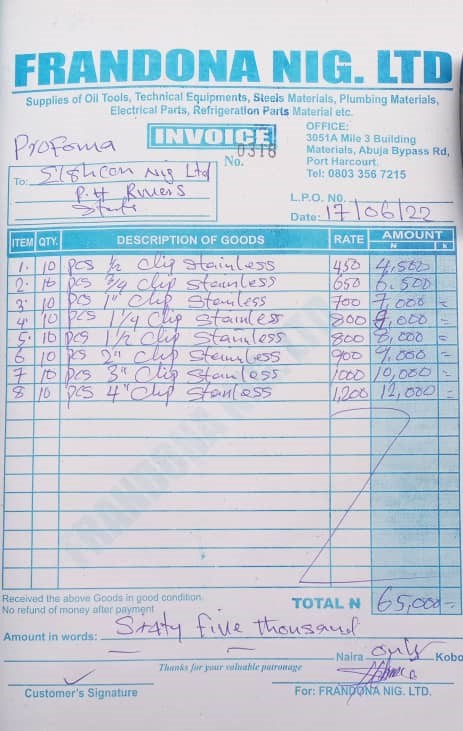 FRANDONA NIG. LTD
Supplies of Oil Tools, Technical Equipments, Steels Materials, Plumbing Materials,
Electrical Parts, Refrigeration Parts Material etc.
Profoma
INVOICE
No. 0318
OFFICE:
3051A Mile 3 Building
Materials, Abuja Bypass Rd,
Port Harcourt.
Tel: 0803 356 7215
To: Nig Ltd
P.H Rivers
State
L.P.O. NO.
Date: 17/06/22
ITEM QTY. DESCRIPTION OF GOODS RATE AMOUNT
N K
1. 10 pcs 1/2 Clip Stainless 450 4,500
2. 10 pcs 3/4 Clip Stainless 650 6,500
3. 10 pcs 1" Clip Stainless 700 7,000 =
4. 10 pcs 1 1/4 Clip Stainless 800 8,000 =
5. 10 pcs 1 1/2 Clip Stainless 800 8,000 =
6 10 pcs 2" Clip Stainless 900 9,000 =
7 10 pcs 3" Clip Stainless 1000 10,000 =
8 10 pcs 4" Clip Stainless 1,200 12,000 =
FRANDONA NIG. LTD
Received the above Goods in good condition.
No refund of money after payment
TOTAL N 65,000 =
Amount in words: Sixty five thousand
Naira only Kobo
Thanks for your valuable patronage
Customer's Signature
For: FRANDONA NIG. LTD.